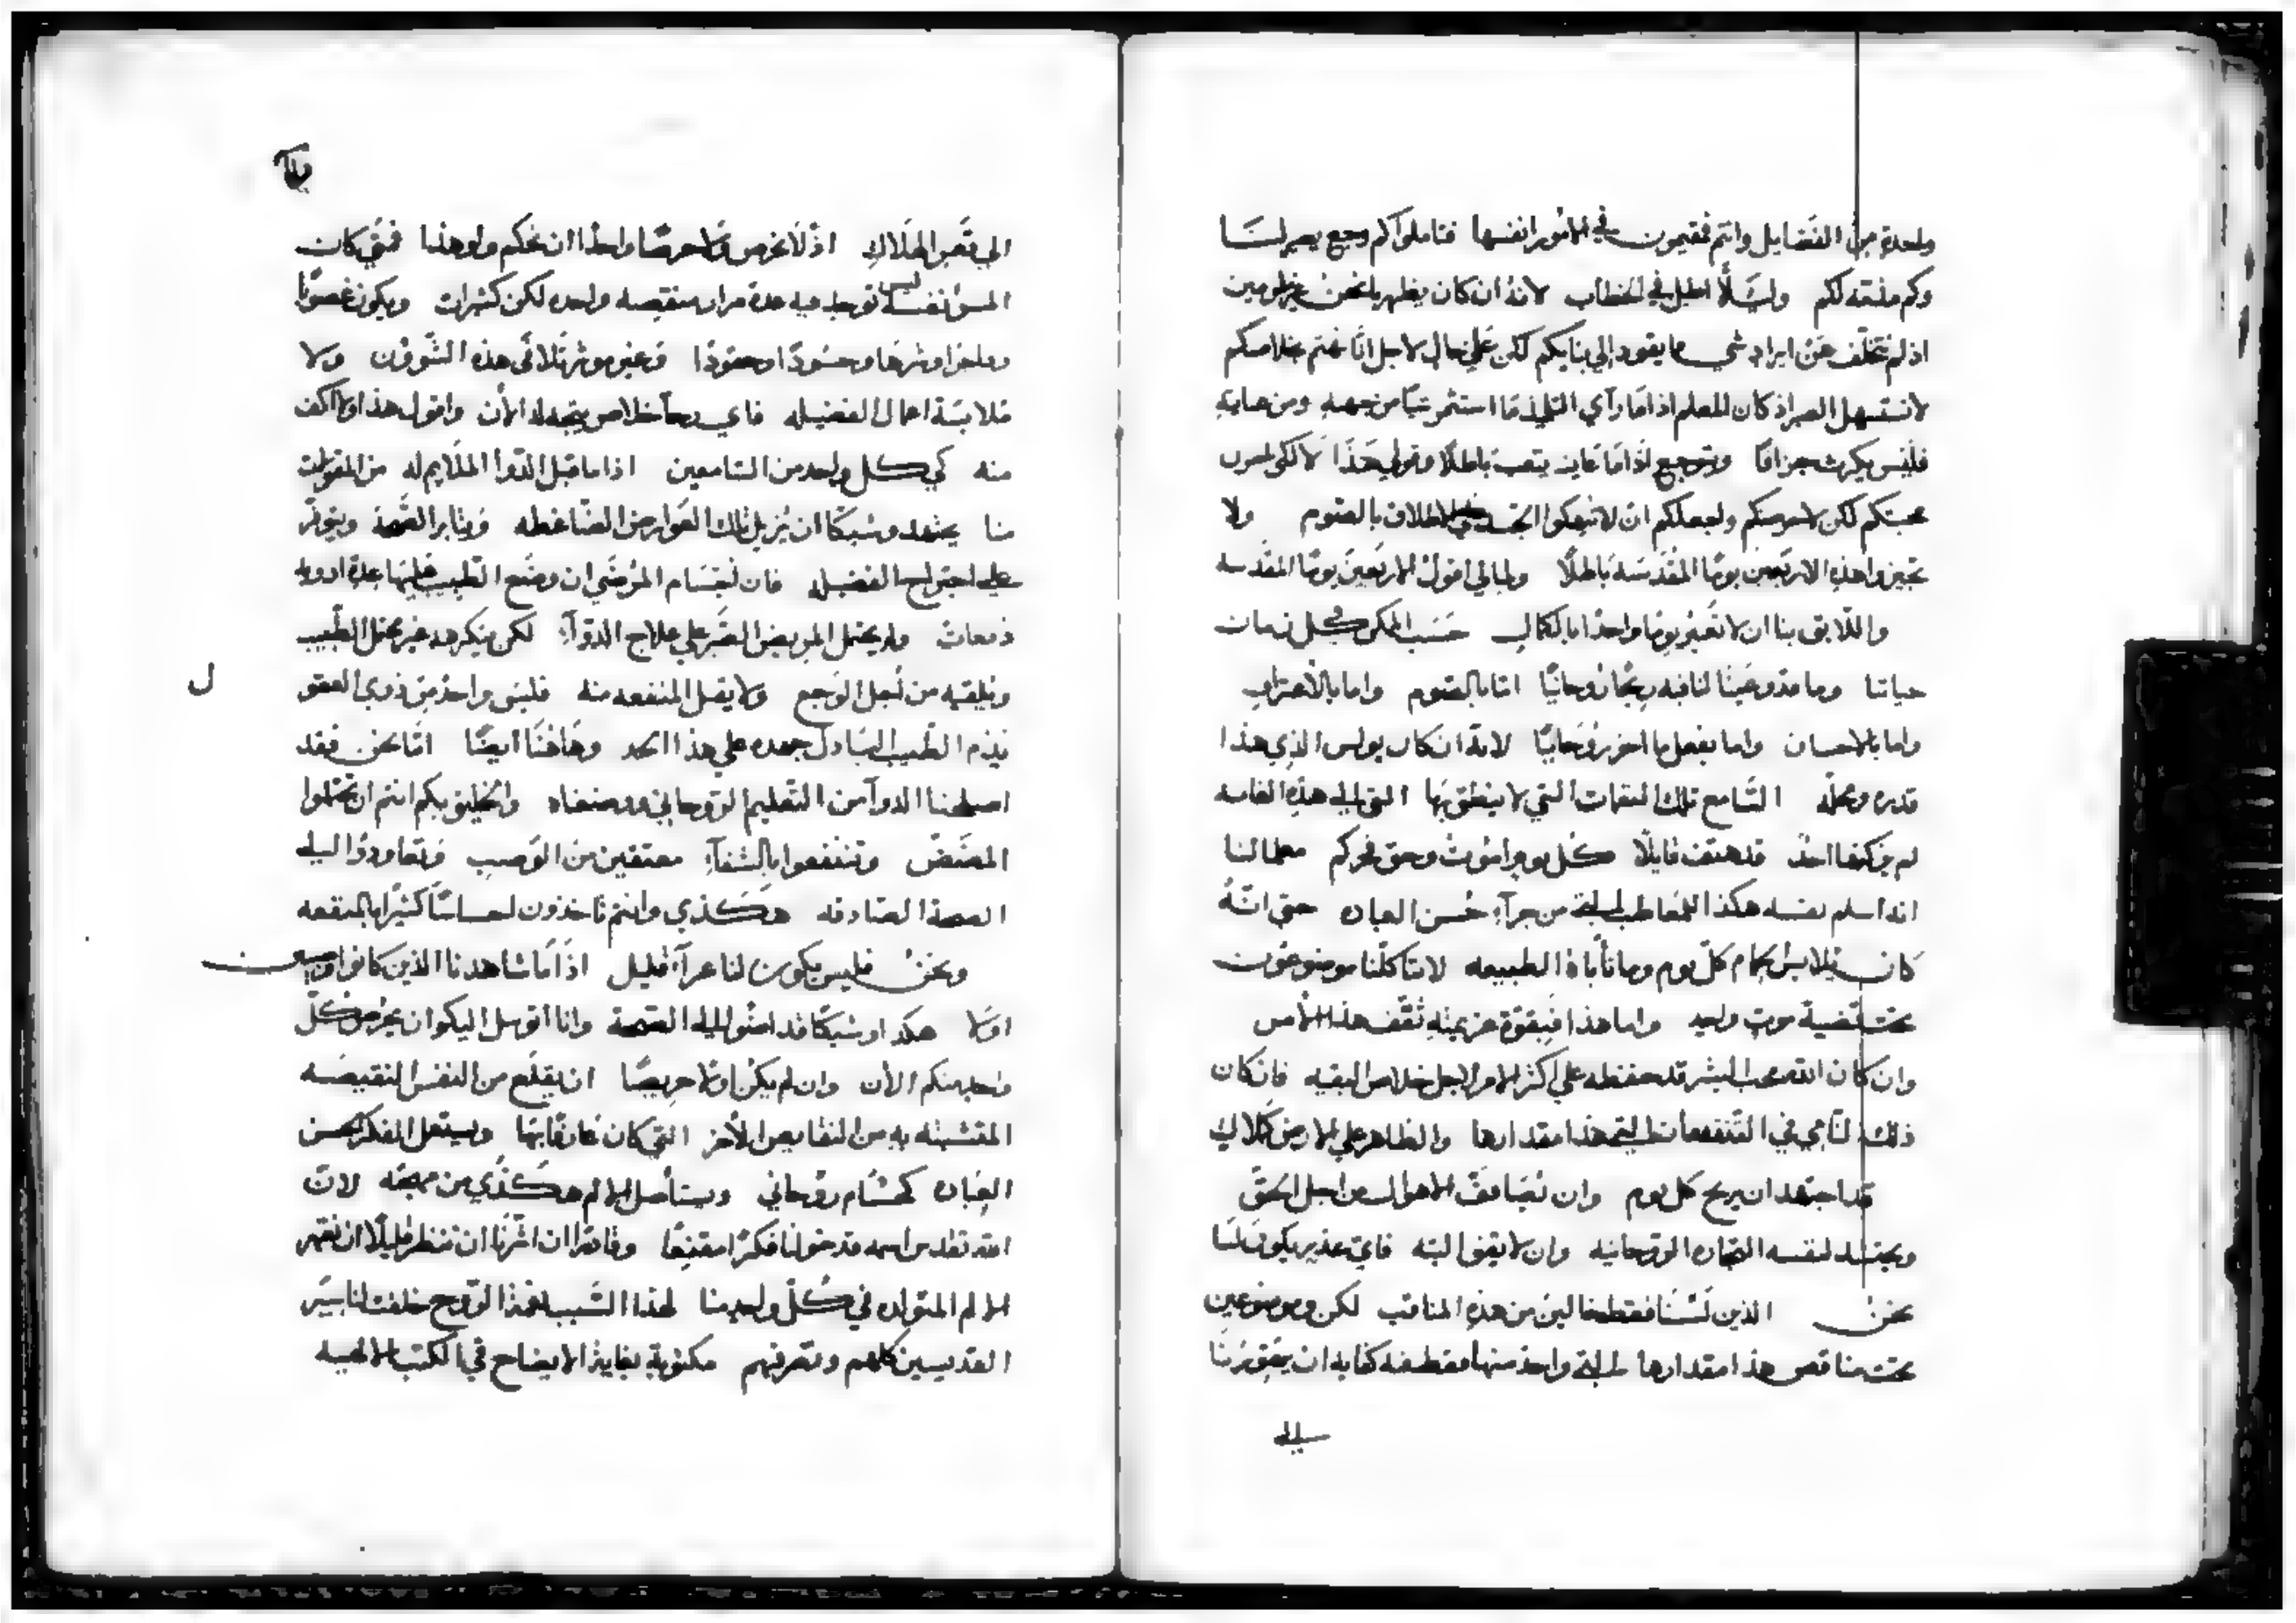 واحدة من الفضايل وانتم فقيمون في الامور انفسها فتاملوا كم وجع يصير لنا
وكم ملمته لكم وليلا اطيل في الخطاب لانه ان كان يظهر بانحن غير لومين
اذ لم نتخلف عن ايراد شي ما يقود الي بنايكم لكن علي حال لاجل انا نهتم خلاصكم
لا نستسهل الصبر اذ كان المعلم اذا ما رآي التلميذ ما استثمر شيا من جهه ومن عنايته
فليس يكرث جزافا ويتوجع اذا ما عاين يتعب باطلا وقولي هذا لا لكي احزن
محبتكم لكن لاحرصكم واجعلكم ان لا تنهكوا الجسد علي الاطلاق بالصوم ولا
تجيزوا هذه الاربعين يوما المقدسه باطلا ولما لي اقول الاربعين يوما المقدسه
واللايق بنا ان لا نعبر يوما واحدا بالكمال حسب الممكن في كل زمان
حياتنا وما مذوخينا لنا فيه ربحا روحانيا اما بالصوم واما بالاعتراف
واما بالاحسان واما بفعل ما اخر روحانيا لانه ان كان بولس الذي هذا
قدره ومحله السامع تلك النغمات التي لا ينطق بها التي الي هذه الغايه
لم يعرفها احد قد هتف قايلا كل يوم اموت وحق فخركم معلما لنا
انه اسلم نفسه هكذا للمعاطب من جرآء حسن العباده حتي انه
كان يلابس الحمام كل يوم وما تاباه الطبيعه لاننا كلنا موضوعون
تحت قضية موت واحد واما هذا فبقوة عزيمته ثقف هذا الامر
وان كان الله محب البشر قد حفظه علي اكثر الامر لاجل خلاص البقيه فان كان
ذلك الناجي في التنفعات التي هذا مقدارها والظاهر علي الارض كملاك
قد اجتهد ان يربح كل يوم وان يصافف الاهوال من اجل الحق
ويجتلد لنفسه التجاره الروحانيه وان لا يقف البته فاي عذر يكون لنا
نحن الذين لسنا فقط خالين من هذه المناقب لكن وموضوعين
تحت مناقص هذا مقدارها التي واحدة منها فقط فيه كفايه ان يتهورنا
الي
الي قعر الهلاك اذ لا نحرص ولا حرصا واحدا ان نحكم ولو هذا فمتي كان
المرو نفسه ليس توجد فيه عدة مرار منقصه واحده لكن كثيرات ويكون غصوبا
وماجنا وشرها وحسودا وحقودا وغير موثر تلافي هذه الشوون ولا
ملابسة اعمال الفضيله فاي رجآ خلاص يتجه له الان واقول هذا ولا اكف
منه كي كل واحد من السامعين اذا ما قبل الدوا الملايم له من المقولات
منا يجتهد وشيكا ان يزيل تلك العوارض الضاغطه ويثابر الصحة ويتوفر
علي اجتراح الفضيله فان اجسام المرضي ان وضع الطبيب عليها عدة ادويه
دفعات ولم يحتمل المريض الصبر علي علاج الدوآء لكن يتكرهه غير محتمل الطبيب
ويلقيه من اجل الوجع ولا يقبل المنفعه منه فليس واحد من ذوي العقو
ل
يذم الطبيب الباذل جهده علي هذا الحد وهاهنا ايضا اما نحن فقد
اصلحنا الدوآ من التعليم الروحاني ووضعناه والخليق بكم انتم ان تحتملوا
المضض وتنتفعوا بالشفآء معتقين من الوصب وتعاودوا اليه
الصحة الصادقه هكذي وانتم تاخذون احساسا كثيرا بالمنفعه
ونحن فليس يكون لنا عزآء قليل اذا ما شاهدنا الذين كانوا وصبين
اولا هكذا وشيكا قد امتثوا ليه الصحة وانا اتوسل اليكم ان يحرص كل
واحد منكم الان وان لم يكن اولا حريصا ان يقلع من النفس النقيصه
المتشبثه به من النقايص الاخر التي كان عارفا بها ويستعمل الفكر الحسن
العباده كحسام روحاني ويستاصل الالم هكذي من مهجته لان
الله تقدس اسمه قد خولنا فكرا مقنعا وقادرا ان اثرنا ان ننظر قليلا ان نقهر
الالم المتولد في كل واحد منا لهذا السبب نعمة الروح خلفت لنا سير
القديسين كلهم وتصرفهم مكتوبة بغاية الايضاح في الكتب الالهيه